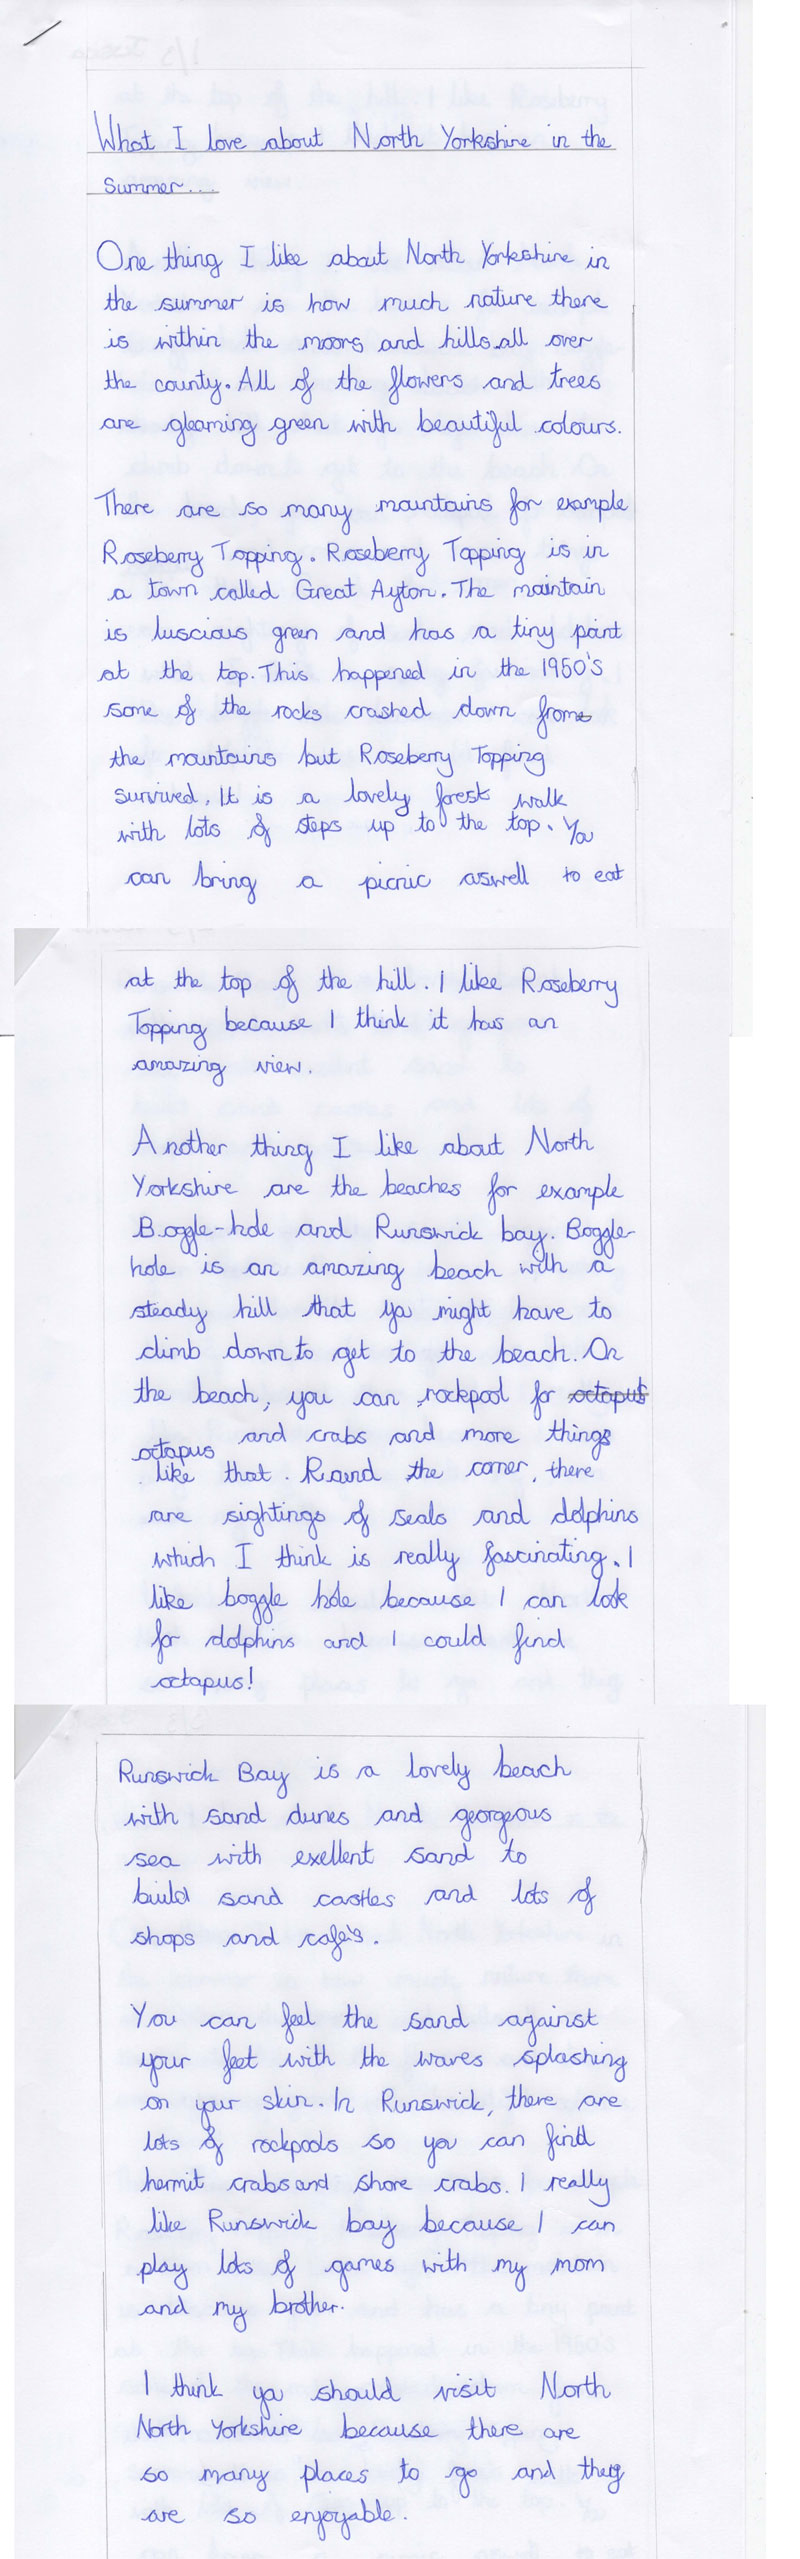 What I love about North Yorkshire in the
Summer...
One thing I like about North Yorkshire in
the summer is how much nature there
is within the moors and hills all over
the county. All of the flowers and trees
are gleaming green with beautiful colours.
There are so many mountains for example
Roseberry Topping. Roseberry Topping is in
a town called Great Ayton. The maintain
is luscious green and has a tiny point
at the top. This happened in the 1950's
some of the rocks crashed down frome
the mountains but Roseberry Topping
survived. It is a lovely forest walk
with lots of steps up to the top. You
can bring a picnic aswell to eat
at the top of the hill. I like Roseberry
Topping because I think it has an
amazing view.
Another thing I like about North
Yorkshire are the beaches for example
Boggle-hole and Runswick bay. Boggle-
hole is an amazing beach with a
steady hill that you might have to
climb down to get to the beach. On
the beach, you can rockpool for octapus
octapus and crabs and more things
like that. Round the corner, there
are sightings of seals and dolphins
which I think is really fascinating. I
like boggle hole because I can look
for dolphins and I could find
octapus!
Runswick Bay is a lovely beach
with sand dunes and georgeous
sea with exellent sand to
build sand castles and lots of
shops and cafe's.
You can feel the sand against
your feet with the waves splashing
on your skin. In Runswick, there are
lots of rockpools so you can find
hermit crabs and shore crabs. I really
like Runswick bay because I can
play lots of games with my mom
and my brother.
I think you should visit North
North Yorkshire because there are
so many places to go and they
are so enjoyable.